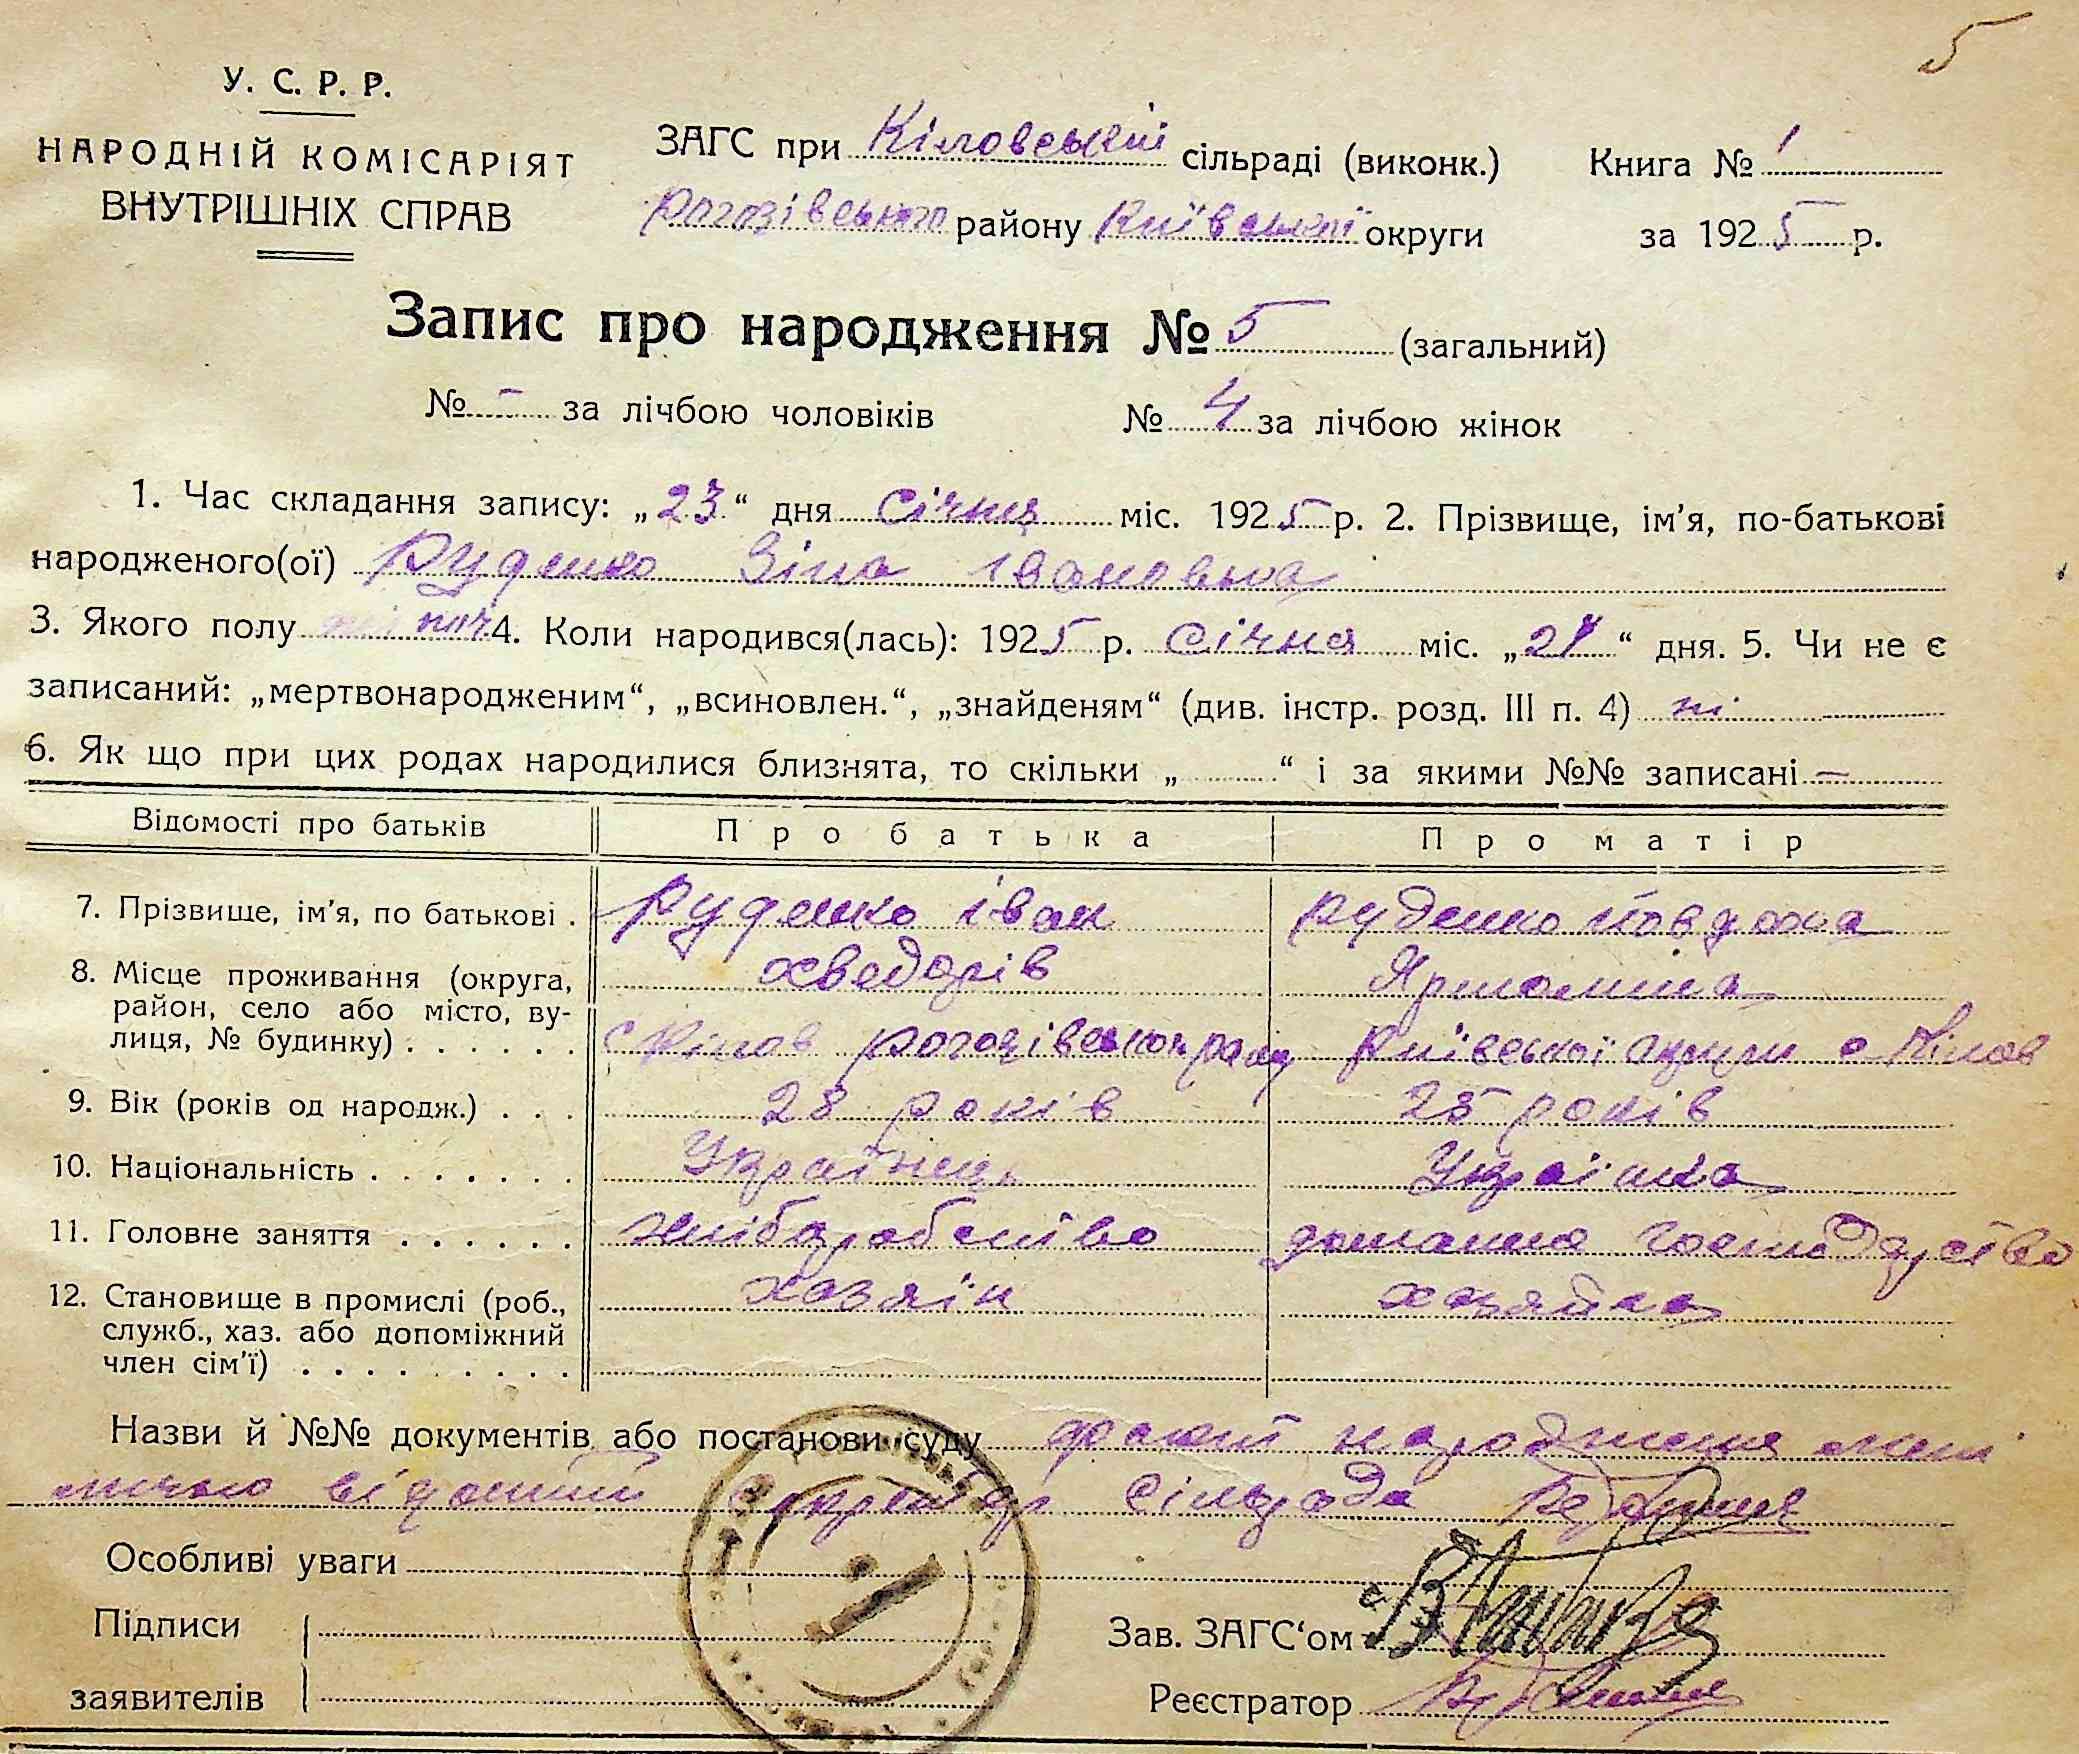 5
У. С. Р. Р.
НАРОДНІЙ КОМІСАРІЯТ
ВНУТРІШНІХ СПРАВ
ЗАГС при Кіловській сільраді (виконк.)
Рогозівського району Київської округи
Книга № 1
за 1925 р.
Запис про народження № 5 (загальний)
№ - за лічбою чоловіків № 4 за лічбою жінок
1. Час складання запису: „23“ дня Січня міс. 1925 р. 2. Прізвище, ім'я, по-батькові
народженого(ої) Руденко Зіна Івановна
3. Якого полу жіноч 4. Коли народився(лась): 1925 р. Січня міс. „21“ дня. 5. Чи не є
записаний: „мертвонародженим“, „всиновлен.“, „знайденям“ (див. інстр. розд. III п. 4) ні
6. Як що при цих родах народилися близнята, то скільки „ “ і за якими №№ записані —
Відомості про батьків Про батька Про матір
7. Прізвище, ім'я, по батькові . Руденко Іван Руденко Йовдоха
Хведорів Ярмоліна
8. Місце проживання (округа,
район, село або місто, ву-
лиця, № будинку) . . . . . . с Кілов Рогозівського рай Київської округи с Кілов
9. Вік (років од народж.) . . . 28 років 25 років
10. Національність . . . . . . . Українець Украінка
11. Головне заняття . . . . . . хліборобство домашнє господарство
12. Становище в промислі (роб.,
служб., хаз. або допоміжний
член сім'ї) . . . . . . . . . хозяін хозяйка
Назви й №№ документів або постанови суду факт народження мені
лично відомий Секретар Сільради
Особливі уваги
Підписи
заявителів
Зав. ЗАГС‘ом
Реєстратор